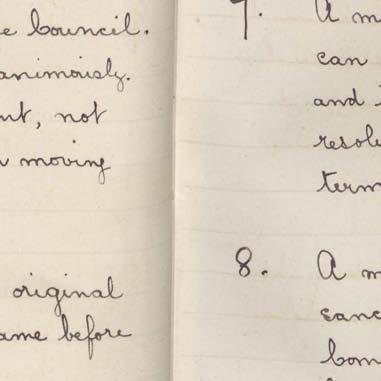 e Council.
animously.
nt, not
n moving
original
ame before
7. A m
can
and
resol
term
8. A m
canc
Com